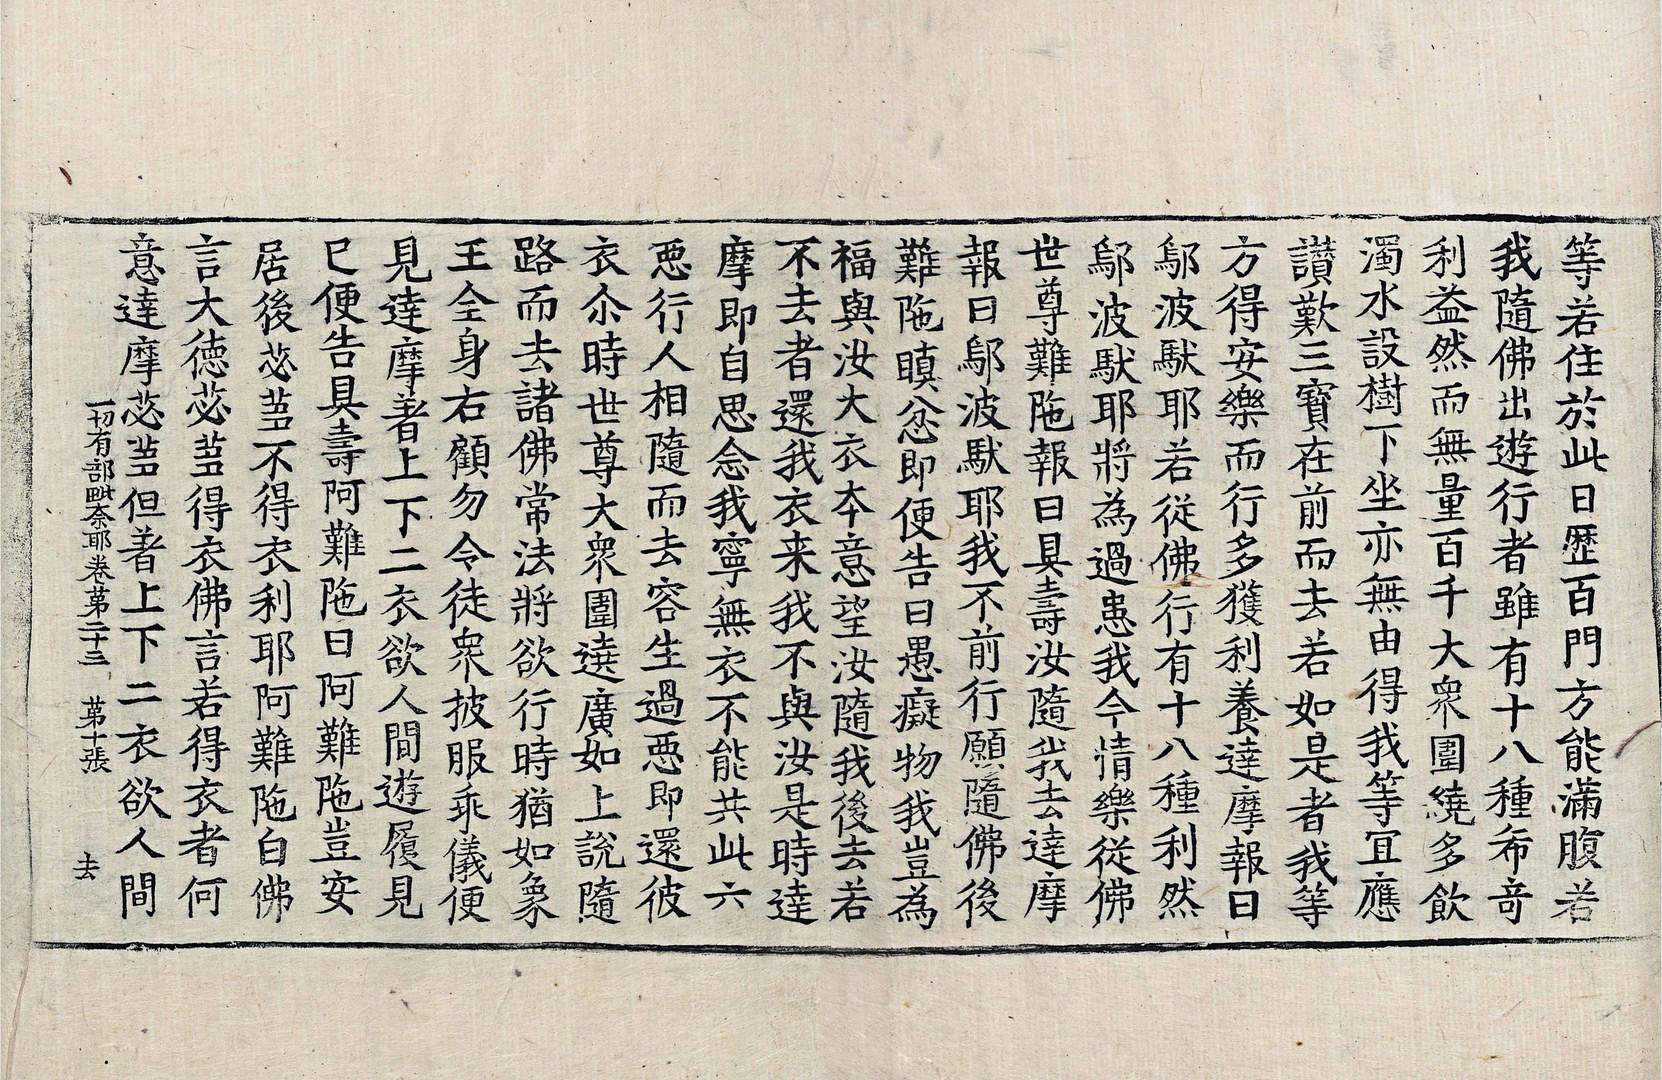 等若住於此日歷百門方能滿腹若
我隨佛出遊行者雖有十八種希奇
利益然而無量百千大衆圍繞多飮
濁水設樹下坐亦無由得我等宜應
讃歎三寶在前而去若如是者我等
方得安樂而行多獲利養達摩報曰
鄔波馱耶若從佛行有十八種利然
鄔波馱耶將為過患我今情樂從佛
世尊難陁報曰具壽汝隨我去達摩
報曰鄔波馱耶我不前行願隨佛後
難陁瞋忿即便告曰愚癡物我豈為
福與汝大衣本意望汝隨我後去若
不去者還我衣来我不與汝是時達
摩即自思念我寧無衣不能共此六
惡行人相隨而去容生過惡即還彼
衣尒時世尊大衆圍遶廣如上說隨
路而去諸佛常法將欲行時猶如象
王全身右顧勿令徒衆披服乖儀便
見達摩著上下二衣欲人間遊履見
已便告具壽阿難陁曰阿難陁豈安
居後苾蒭不得衣利耶阿難陁白佛
言大德苾蒭得衣佛言若得衣者何
意達摩苾蒭但著上下二衣欲人間
一切有部毗奈耶卷第二十三 第十張 去